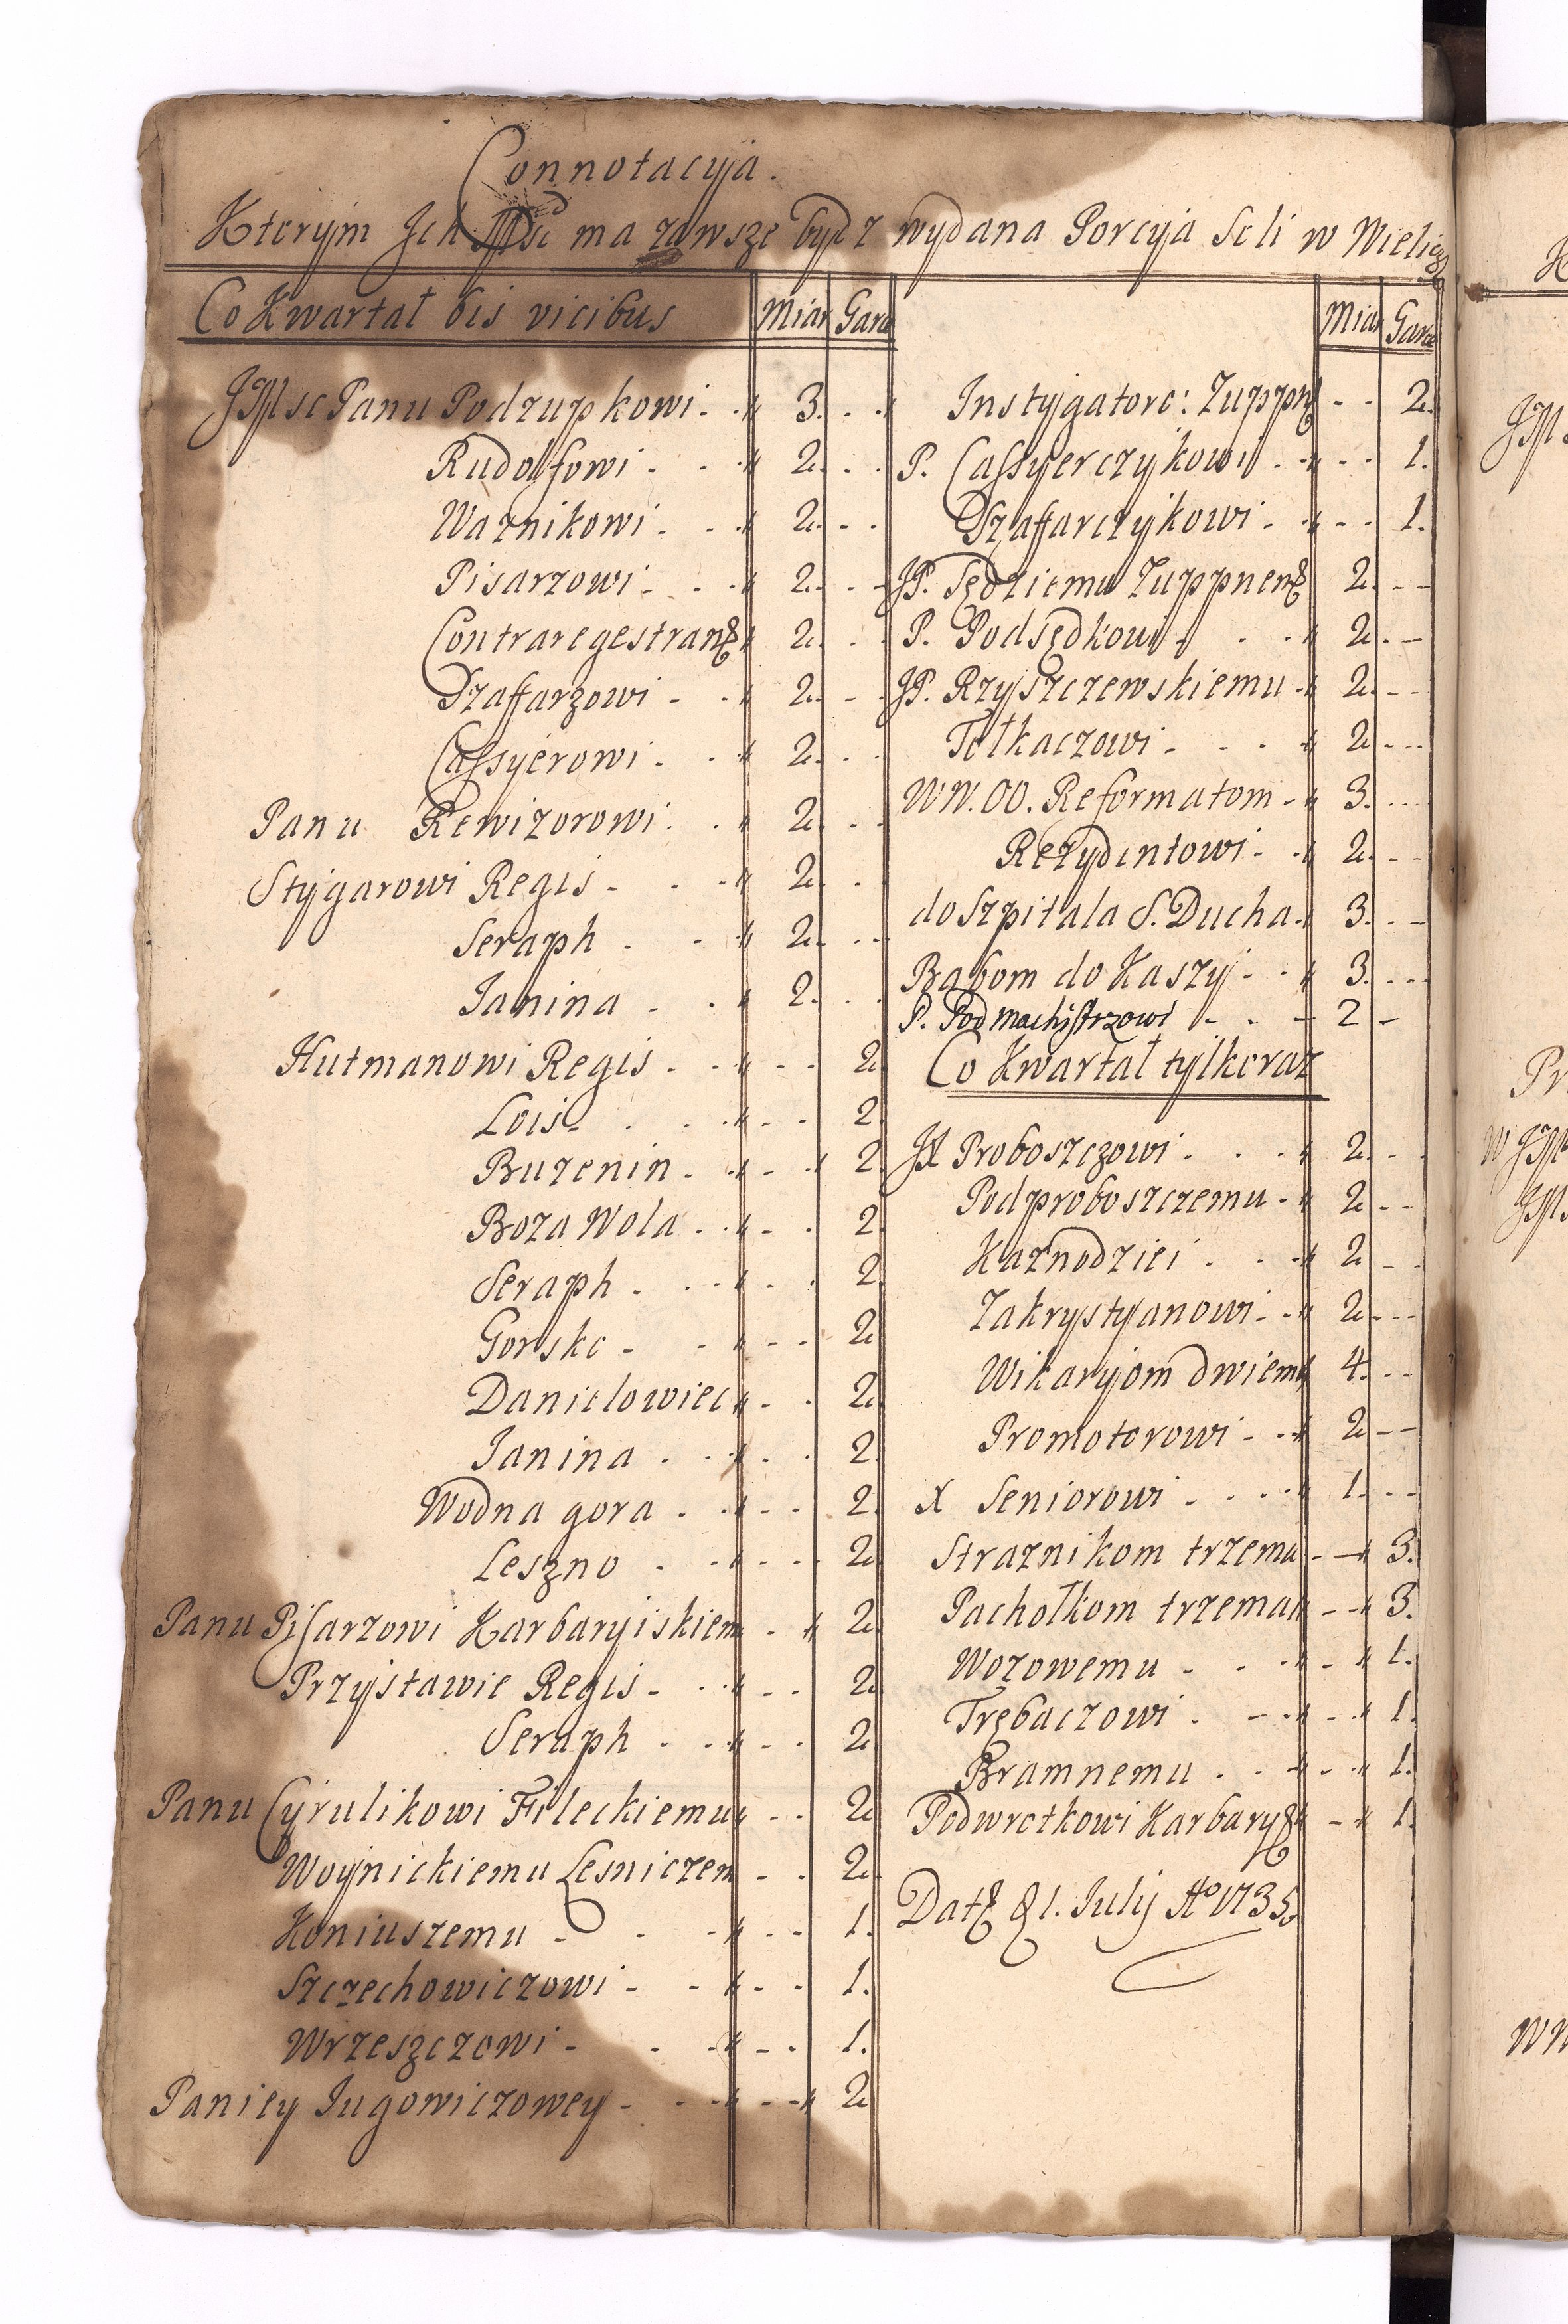 Connotacyja.
Ktorym Ich Mść ma zawsze bydz wydana Porcyja Soli w Wielicz
Co Kwartał bis vicibus Miar Garcę
JMsc Panu Podzupkowi 3.
Rudolfowi 2.
Waznikowi 2.
Pisarzowi 2.
Contraregestran 2.
Szaffarzowi 2.
Cassyerowi 2.
Panu Rewizorowi 2.
Stygarowi Regis 2.
Seraph 2.
Janina 2.
Hutmanowi Regis 2
Lois 2.
Buzenin 2.
Boza Wola 2
Seraph 2.
Gorsko 2
Danielowiec 2
Janina 2
Wodna gora 2.
Leszno 2
Panu Pisarzowi Karbaryiskiem 2
Przystawie Regis 2
Seraph 2
Panu Cyrulikowi Fileckiemu 2
Woynickiemu Lesniczem 2.
Koniuszemu 1.
Szczechowiczowi 1.
Wrzeszczowi 1.
Paniey Jugowiczowey 2
Miar Garcę
Instygatoro: Zuppn 2.
P. Cassyerczykowi 1.
Szaffarczykowi 1.
JP. Sędziemu Zuppnem 2.
P. Podsędkowi 2.
JP. Rzyszczewskiemu 2.
Tołkaczowi 2
WW. OO. Reformatom 3.
Rezydentowi 2.
do Szpitala S. Ducha 3.
Babom do Kaszy 3.
P. Podmachistrzowi 2
Co Kwartał tylko raz
JX Proboszczowi 2.
Podproboszczemu 2
Kaznodziei 2
Zakrystyanowi 2
Wikaryjom dwiema 4.
Promotorowi 2
X Seniorowi 1.
Straznikom trzema 3.
Pachołkom trzema 3.
Wozowemu 1.
Trębaczowi 1.
Bramnemu 1.
Podwrotkowi Karbary 1.
Dat 1. July Ao 1735